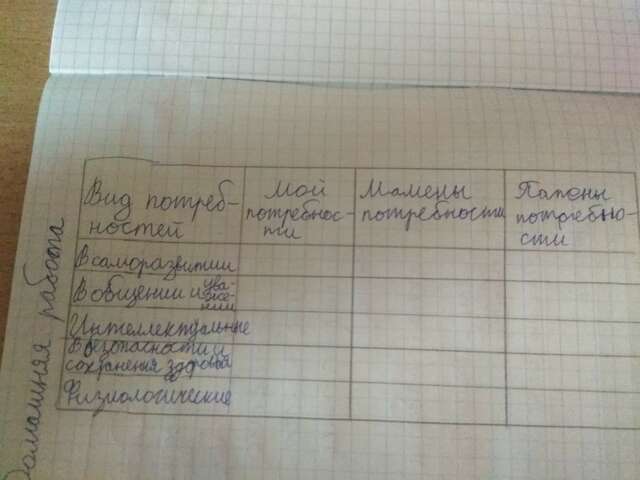 Домашняя работа
Вид потреб-
ностей
Мой
потребнос-
ти
Мамены
потребности
Папены
потребно-
сти
В саморазвитии
В общении и ува-
же-
нии
Интеллектуальные
Безопасности и
сохранения здоровья
Физиологические